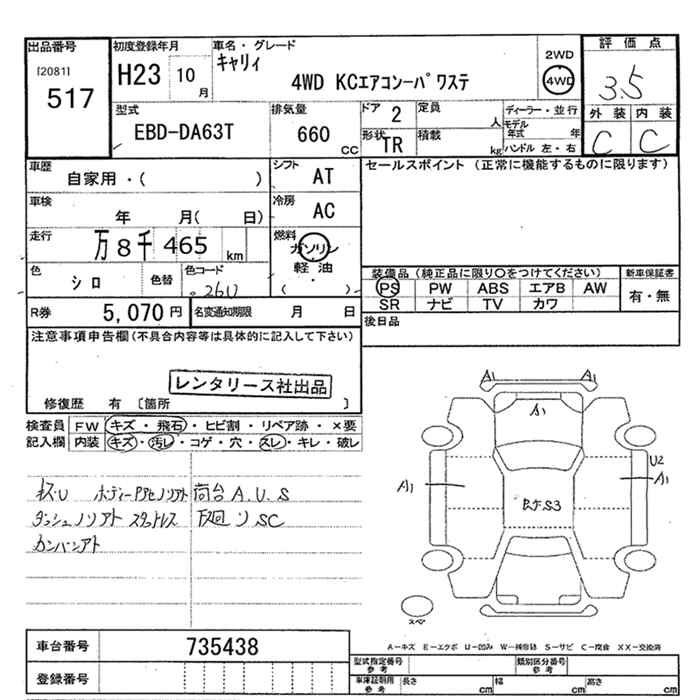 出品番号 初度登録年月 車名・グレード 評価点
[2081] 517 H23 10月 キャリィ
4WD KCエアコンーパワステ 2WD 4WD 3.5
型式 EBD-DA63T 排気量 660 CC ドア 2 定員 人 ディーラー・並行 外装 内装
形状 TR 積載 kg モデル年式 年 ハンドル 左・右 C C
車歴 自家用・( ) シフト AT セールスポイント (正常に機能するものに限ります)
車検 年 月( 日) 冷房 AC
走行 万8千465km 燃料 ガソリン
軽油
( )
色 シロ 色替 色コード 26U
装備品(純正品に限り○をつけてください) 新車保証書
PS PW ABS エアB AW 有・無
SR ナビ TV カワ
R券 5,070円 名変通知期限 月 日 後日品
注意事項申告欄(不具合内容等は具体的に記入して下さい)
レンタリース社出品
修復歴 有 [箇所 ]
検査員 FW キズ・飛石・ヒビ割・リペア跡・×要
記入欄 内装 キズ・汚レ・コゲ・穴・スレ・キレ・破レ
荷台A.U.S
ダッシュノリアト スタットレス
SC
カンバンアト
A1 A1
A1
U2
A1 A1
S3
スペア
A-キズ E-エクボ U-凹み W-補修跡 S-サビ C-腐食 XX-交換済
車台番号 735438 型式指定番号 参考 類別区分番号 参考
登録番号 車庫証明用 参考 長さ cm 幅 cm 高さ cm